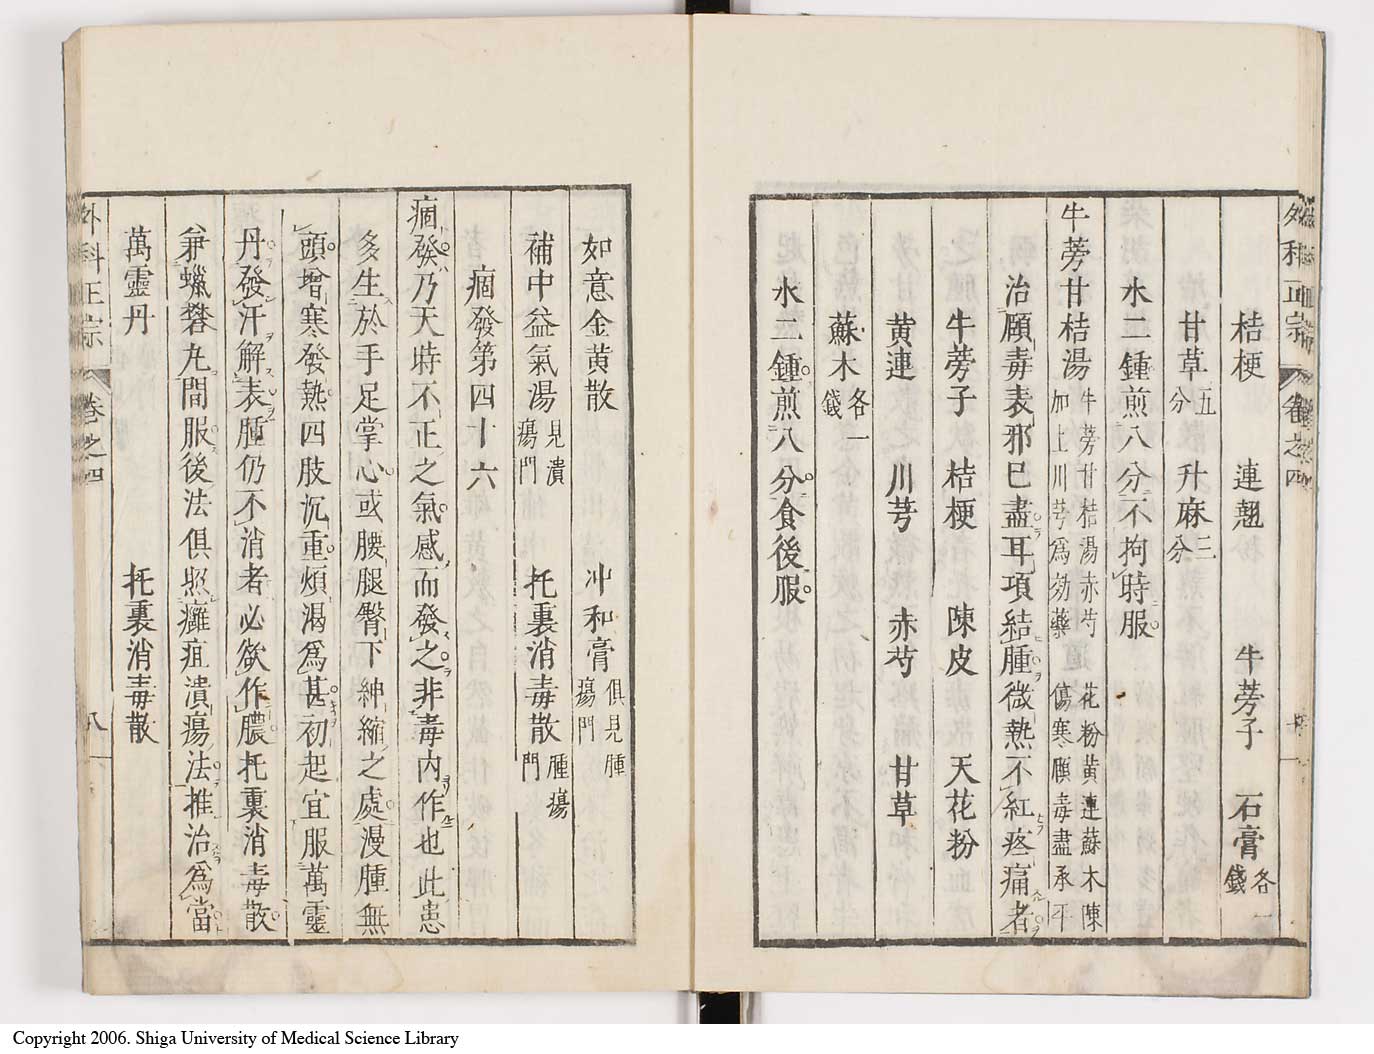 外科正宗 卷之四
桔梗 連翹 牛蒡子 石膏各一錢
甘草五分 升麻三分
水二鍾煎八分不拘時服
牛蒡甘桔湯 牛蒡甘桔湯赤芍 花粉黃連蘇木陳
加上川芎爲効藥 傷寒頥毒盡承平
治頥毒表邪已盡耳項結腫微熱不紅疼痛者
牛蒡子 桔梗 陳皮 天花粉
黃連 川芎 赤芍 甘草
蘇木各一錢
水二鍾煎八分食後服
如意金黃散 冲和膏俱見腫瘍門
補中益氣湯見潰瘍門 托裏消毒散腫瘍門
痼發第四十六
痼發乃天時不正之氣感而發之非毒內作也此患
多生於手足掌心或腰腿臀下紳縮之處漫腫無
頭增寒發熱四肢沉重煩渴爲甚初起宜服萬靈
丹發汗解表腫仍不消者必欲作膿托裏消毒散
兼蠟礬丸間服後法俱照癰疽潰瘍法推治爲當
萬靈丹 托裏消毒散
外科正宗 卷之四 八
Copyright 2006. Shiga University of Medical Science Library